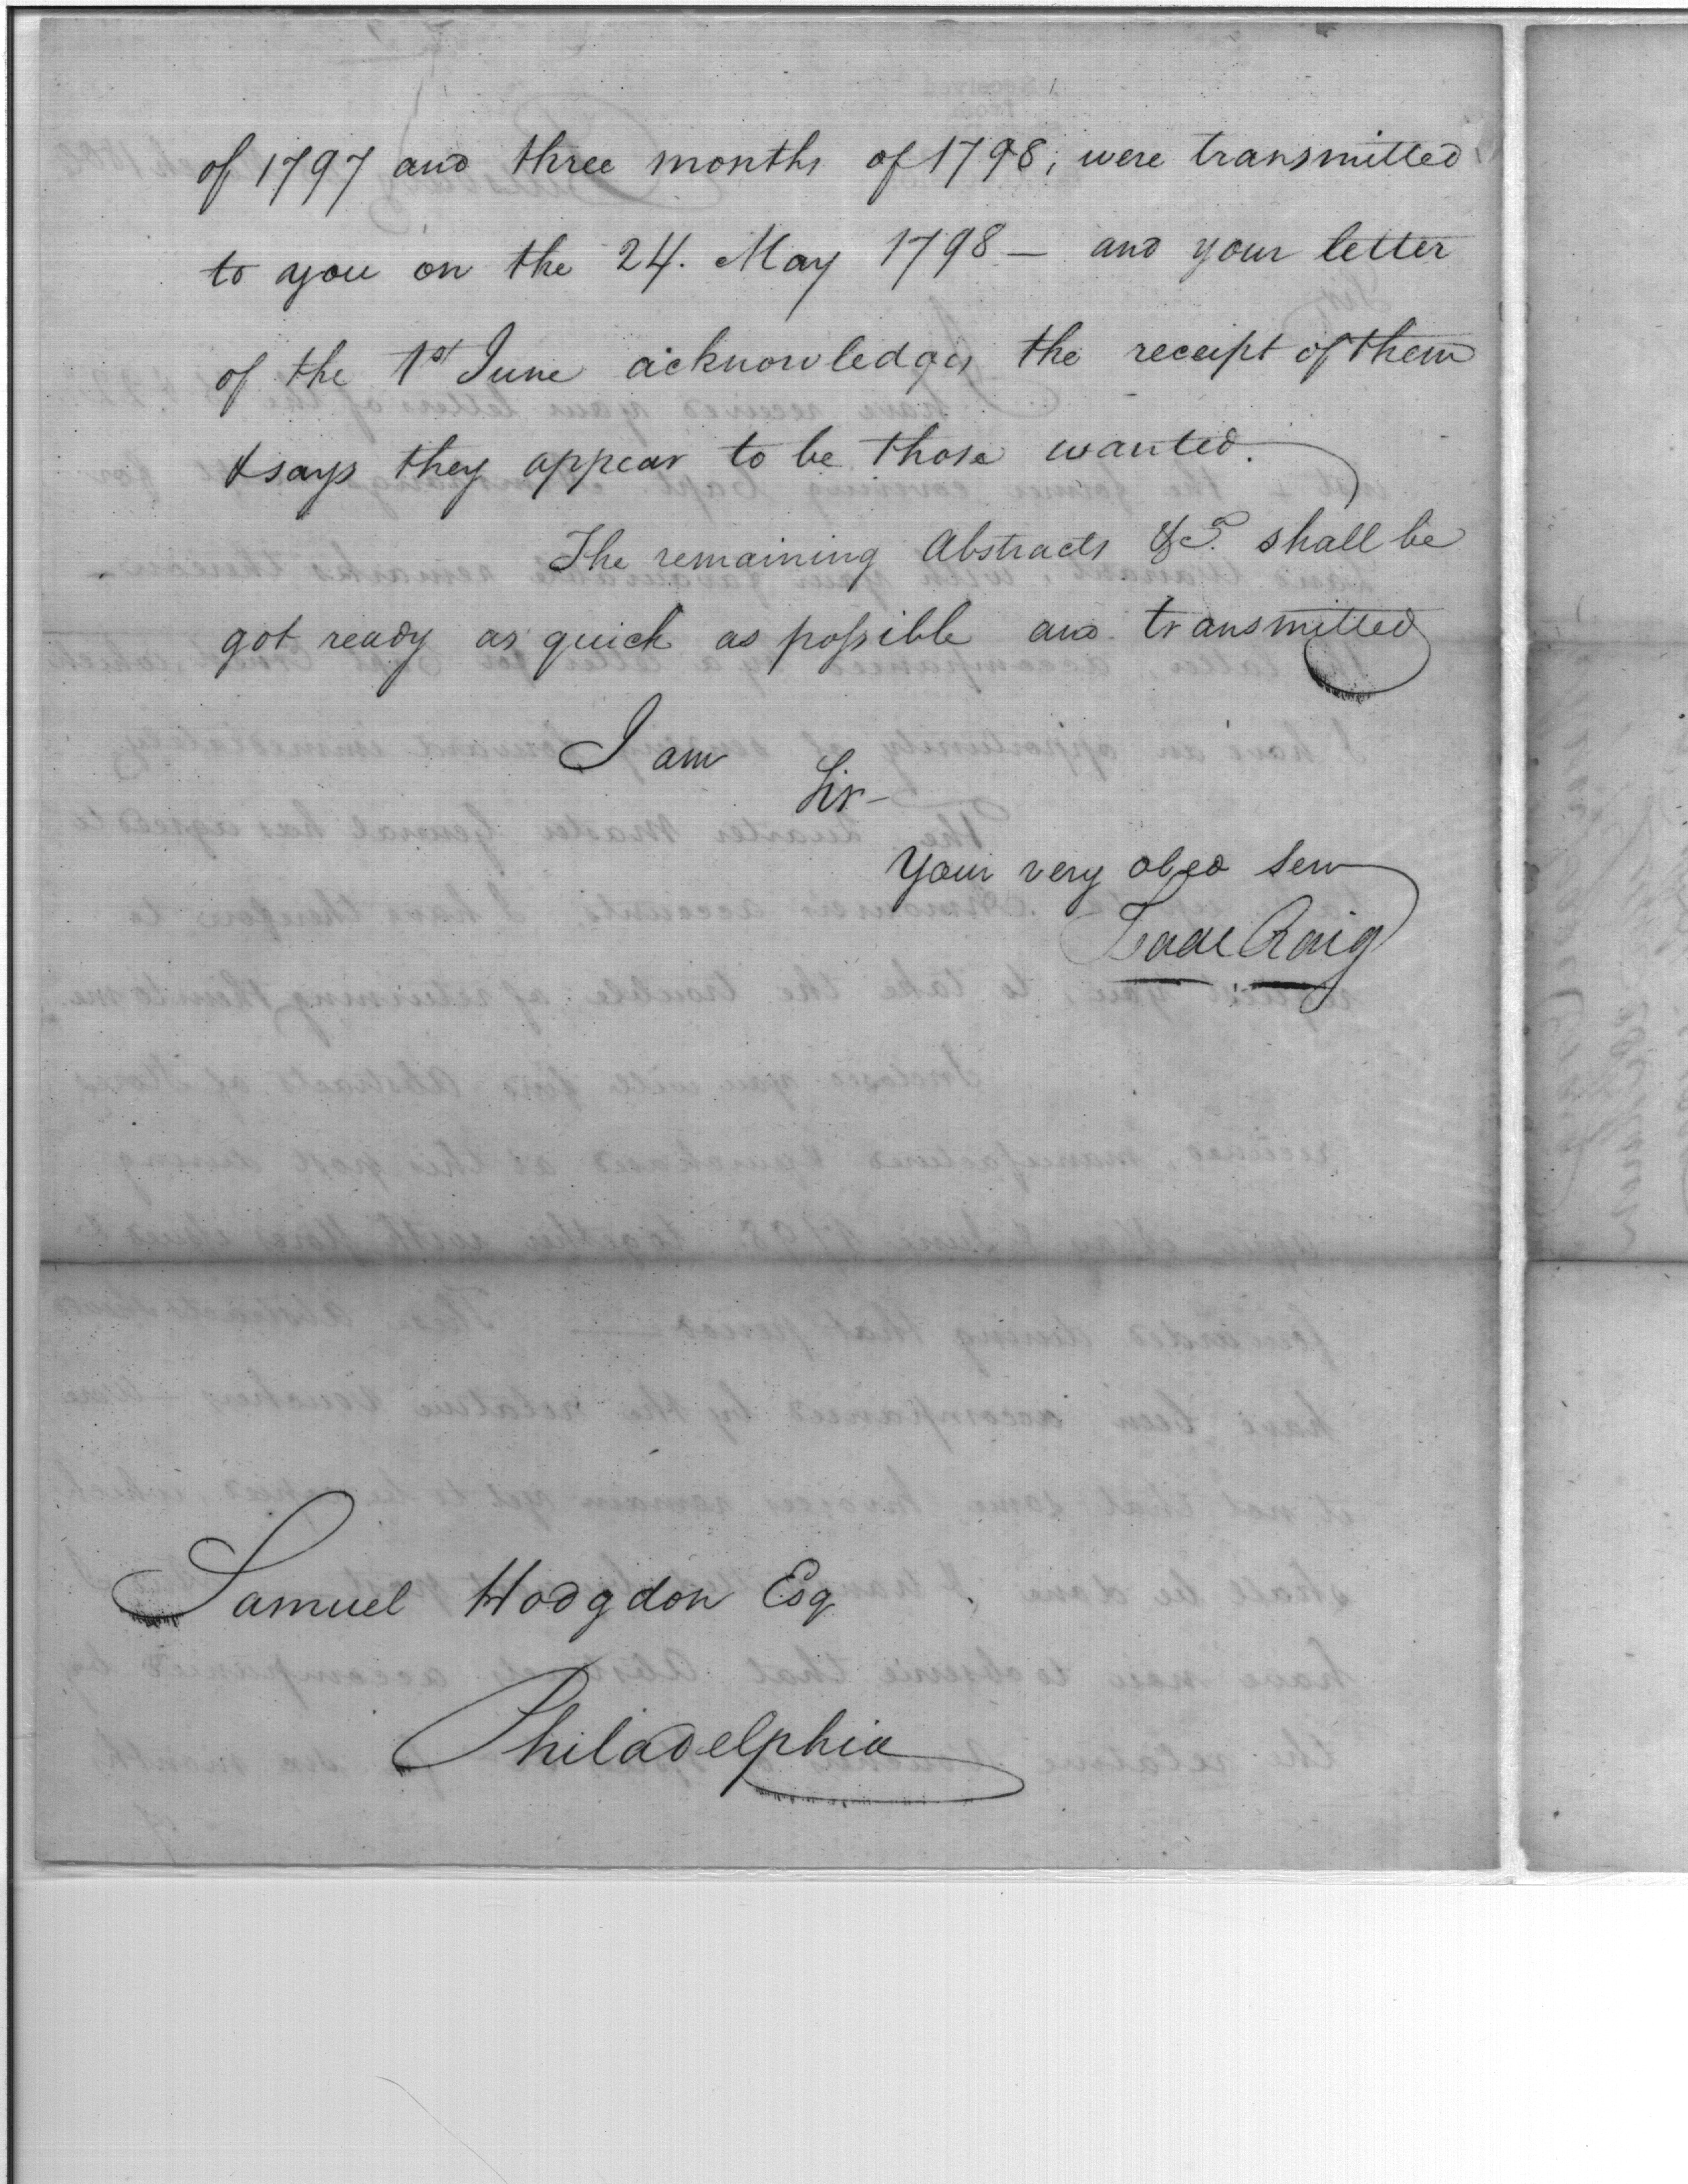 of 1797 and three months of 1798; were transmitted
to you on the 24. May 1798 — and your letter
of the 1st June acknowledges the receipt of them
& says they appear to be those wanted.
The remaining Abstracts &c. shall be
got ready as quick as possible and transmitted
I am
Sir—
Your very obed Serv
Isaac Craig
Samuel Hodgdon Esq
Philadelphia